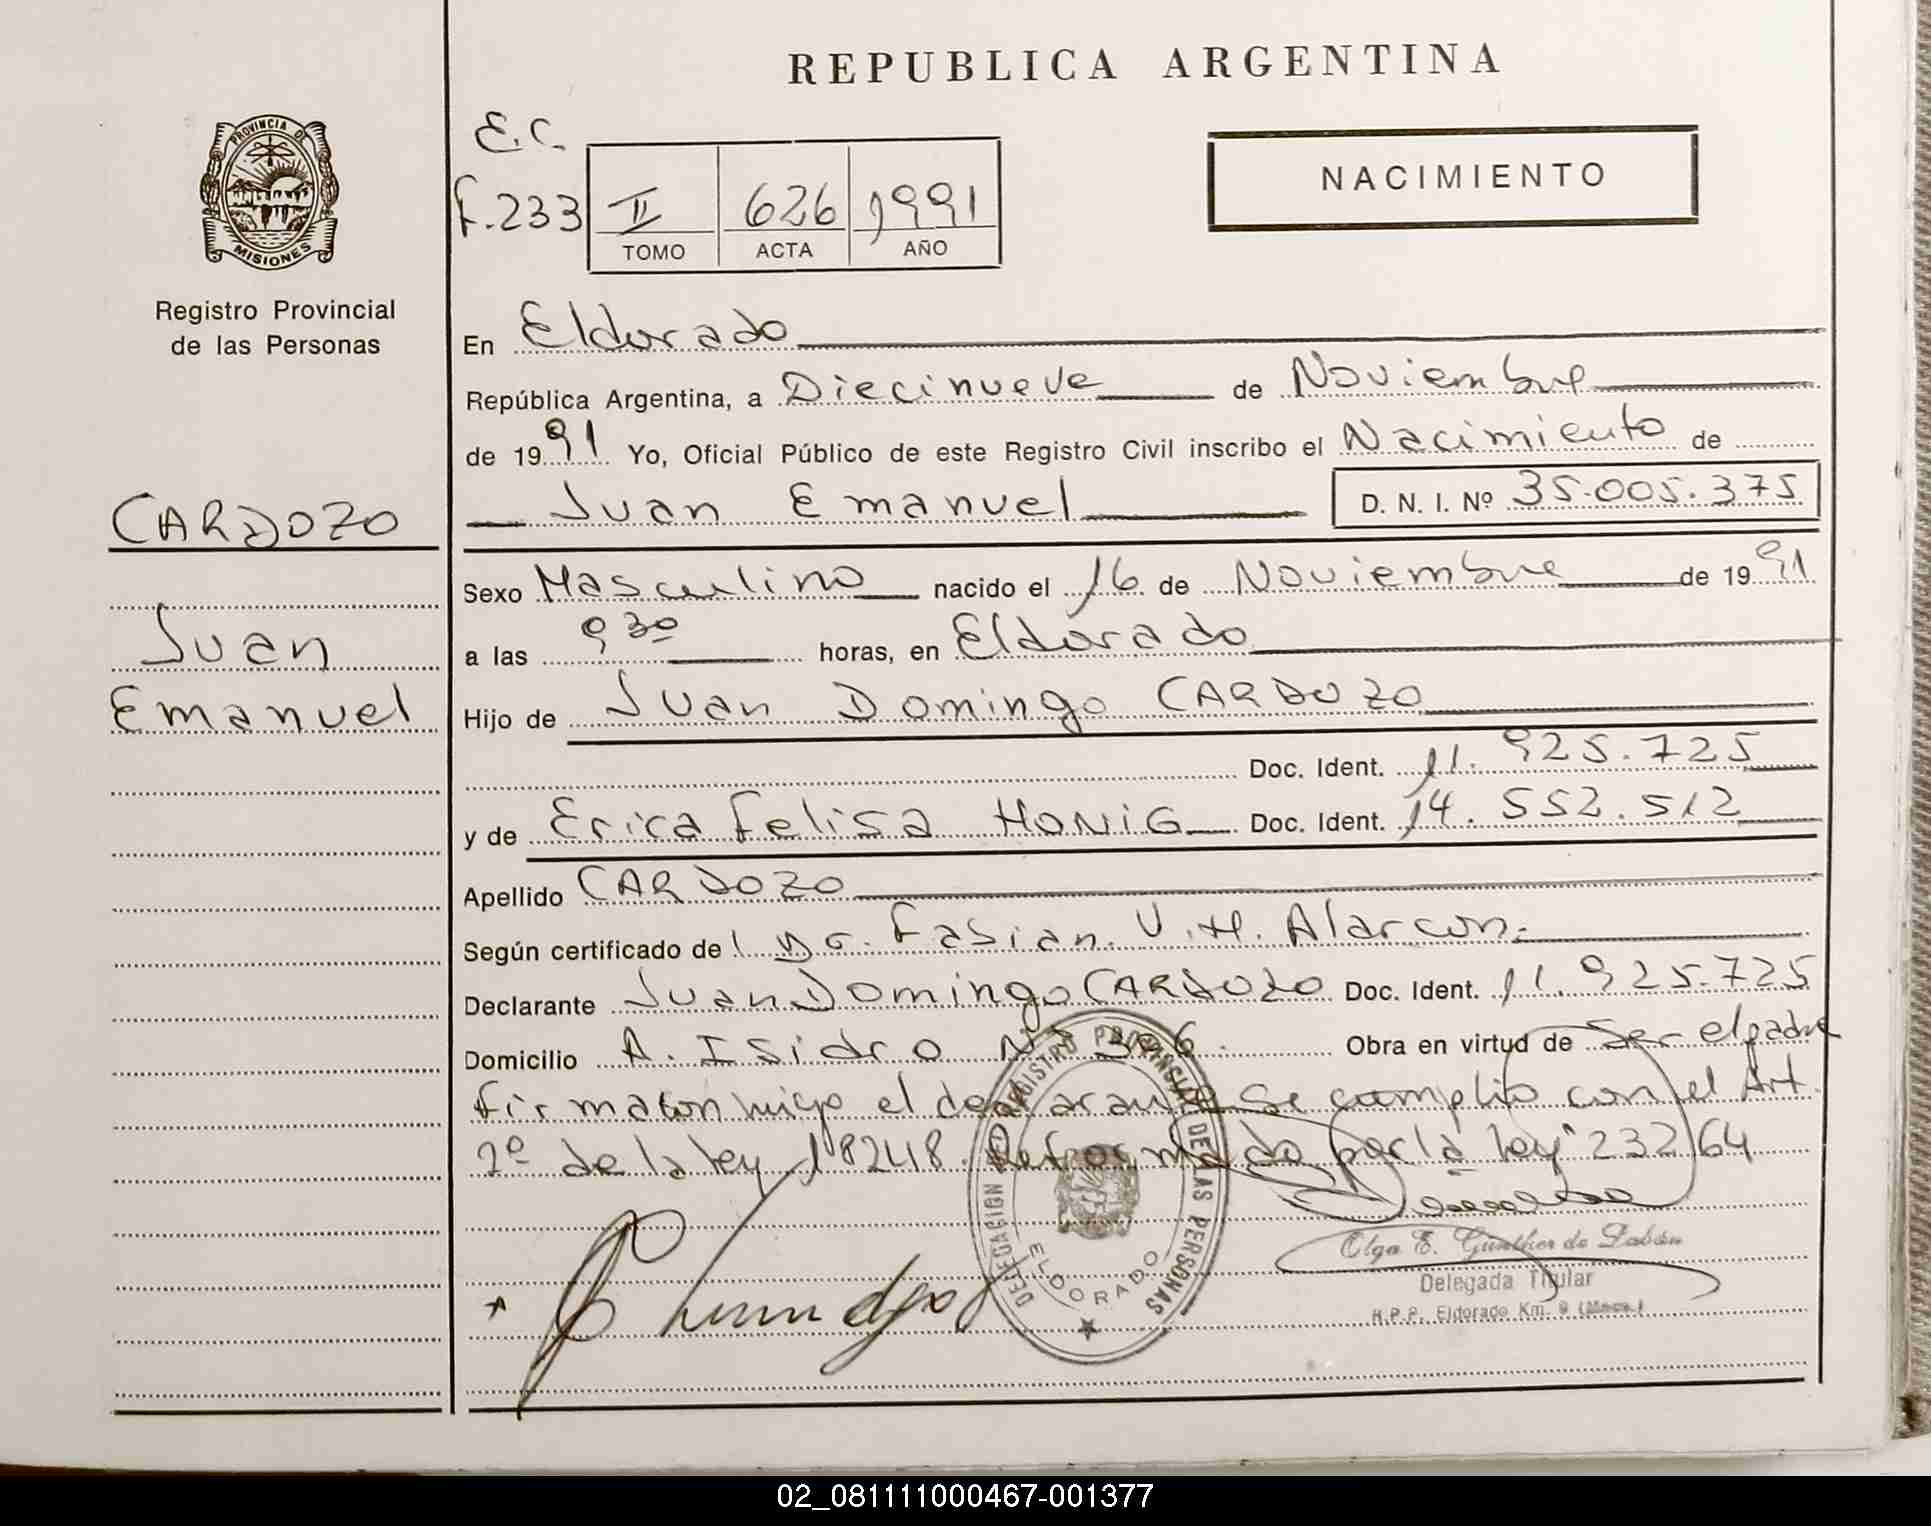 REPUBLICA ARGENTINA
PROVINCIA DE
MISIONES
Registro Provincial
de las Personas
E.C.
F.233
II 626 1991
TOMO ACTA AÑO
NACIMIENTO
En Eldorado
República Argentina, a Diecinueve de Noviembre
de 1991 Yo, Oficial Público de este Registro Civil inscribo el Nacimiento de
Juan Emanuel D. N. I. Nº 35.005.375
CARDOZO
Juan
Emanuel
Sexo Masculino nacido el 16 de Noviembre de 1991
a las 9 30 horas, en Eldorado
Hijo de Juan Domingo CARDOZO
Doc. Ident. 11.925.725
y de Erica Felisa HONIG Doc. Ident. 14.552.512
Apellido CARDOZO
Según certificado de Dr. Fabian V.H. Alarcon.
Declarante Juan Domingo CARDOZO Doc. Ident. 11.925.725
Domicilio A. Isidro Obra en virtud de ser el padre
firma conmigo el declarante Se cumplio con el Art.
2º de la ley 18248. Reformado por la ley 23264
DELEGACION REGISTRO PROVINCIAL DE LAS PERSONAS
ELDORADO
Olga E. Günther de
Delegada Titular
R.P.P. Eldorado Km. 9
02_081111000467-001377